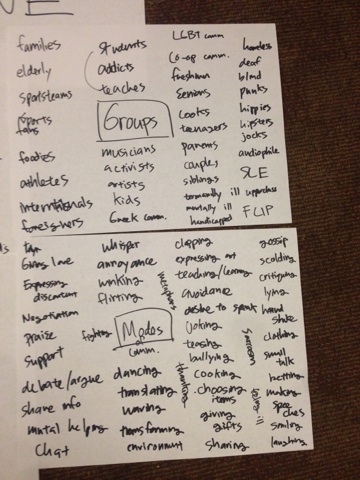 families
elderly
sportsteams
sports
fans
foodies
athletes
internationals
foreigners
students
addicts
teaches
Groups
musicians
activists
artists
kids
Greek comm.
LGBT comm
Co-op comm.
freshman
Seniors
cooks
teenagers
parents
couples
siblings
terminally ill
mentally ill
handicapped
homeless
deaf
blind
punks
hippies
hipsters
jocks
audiophile
SLE
upperclass
FLIP
Giving love
Expressing
discontent
Negotiation
praise
support
debate/argue
share info
mutal helping
chat
whisper
annoyance
winking
flirting
fighting
Modes
of
comm.
dancing
translating
waving
transforming
environment
metaphors
clapping
expressing art
teaching/learning
avoidance
desire to speak
joking
teasing
bullying
cooking
choosing
items
giving
gifts
sharing
thanking
sarcasm
being ill
gossip
scolding
critiquing
lying
hand
shake
clothing
small
talk
betting
making
spee
ches
smiling
laughing